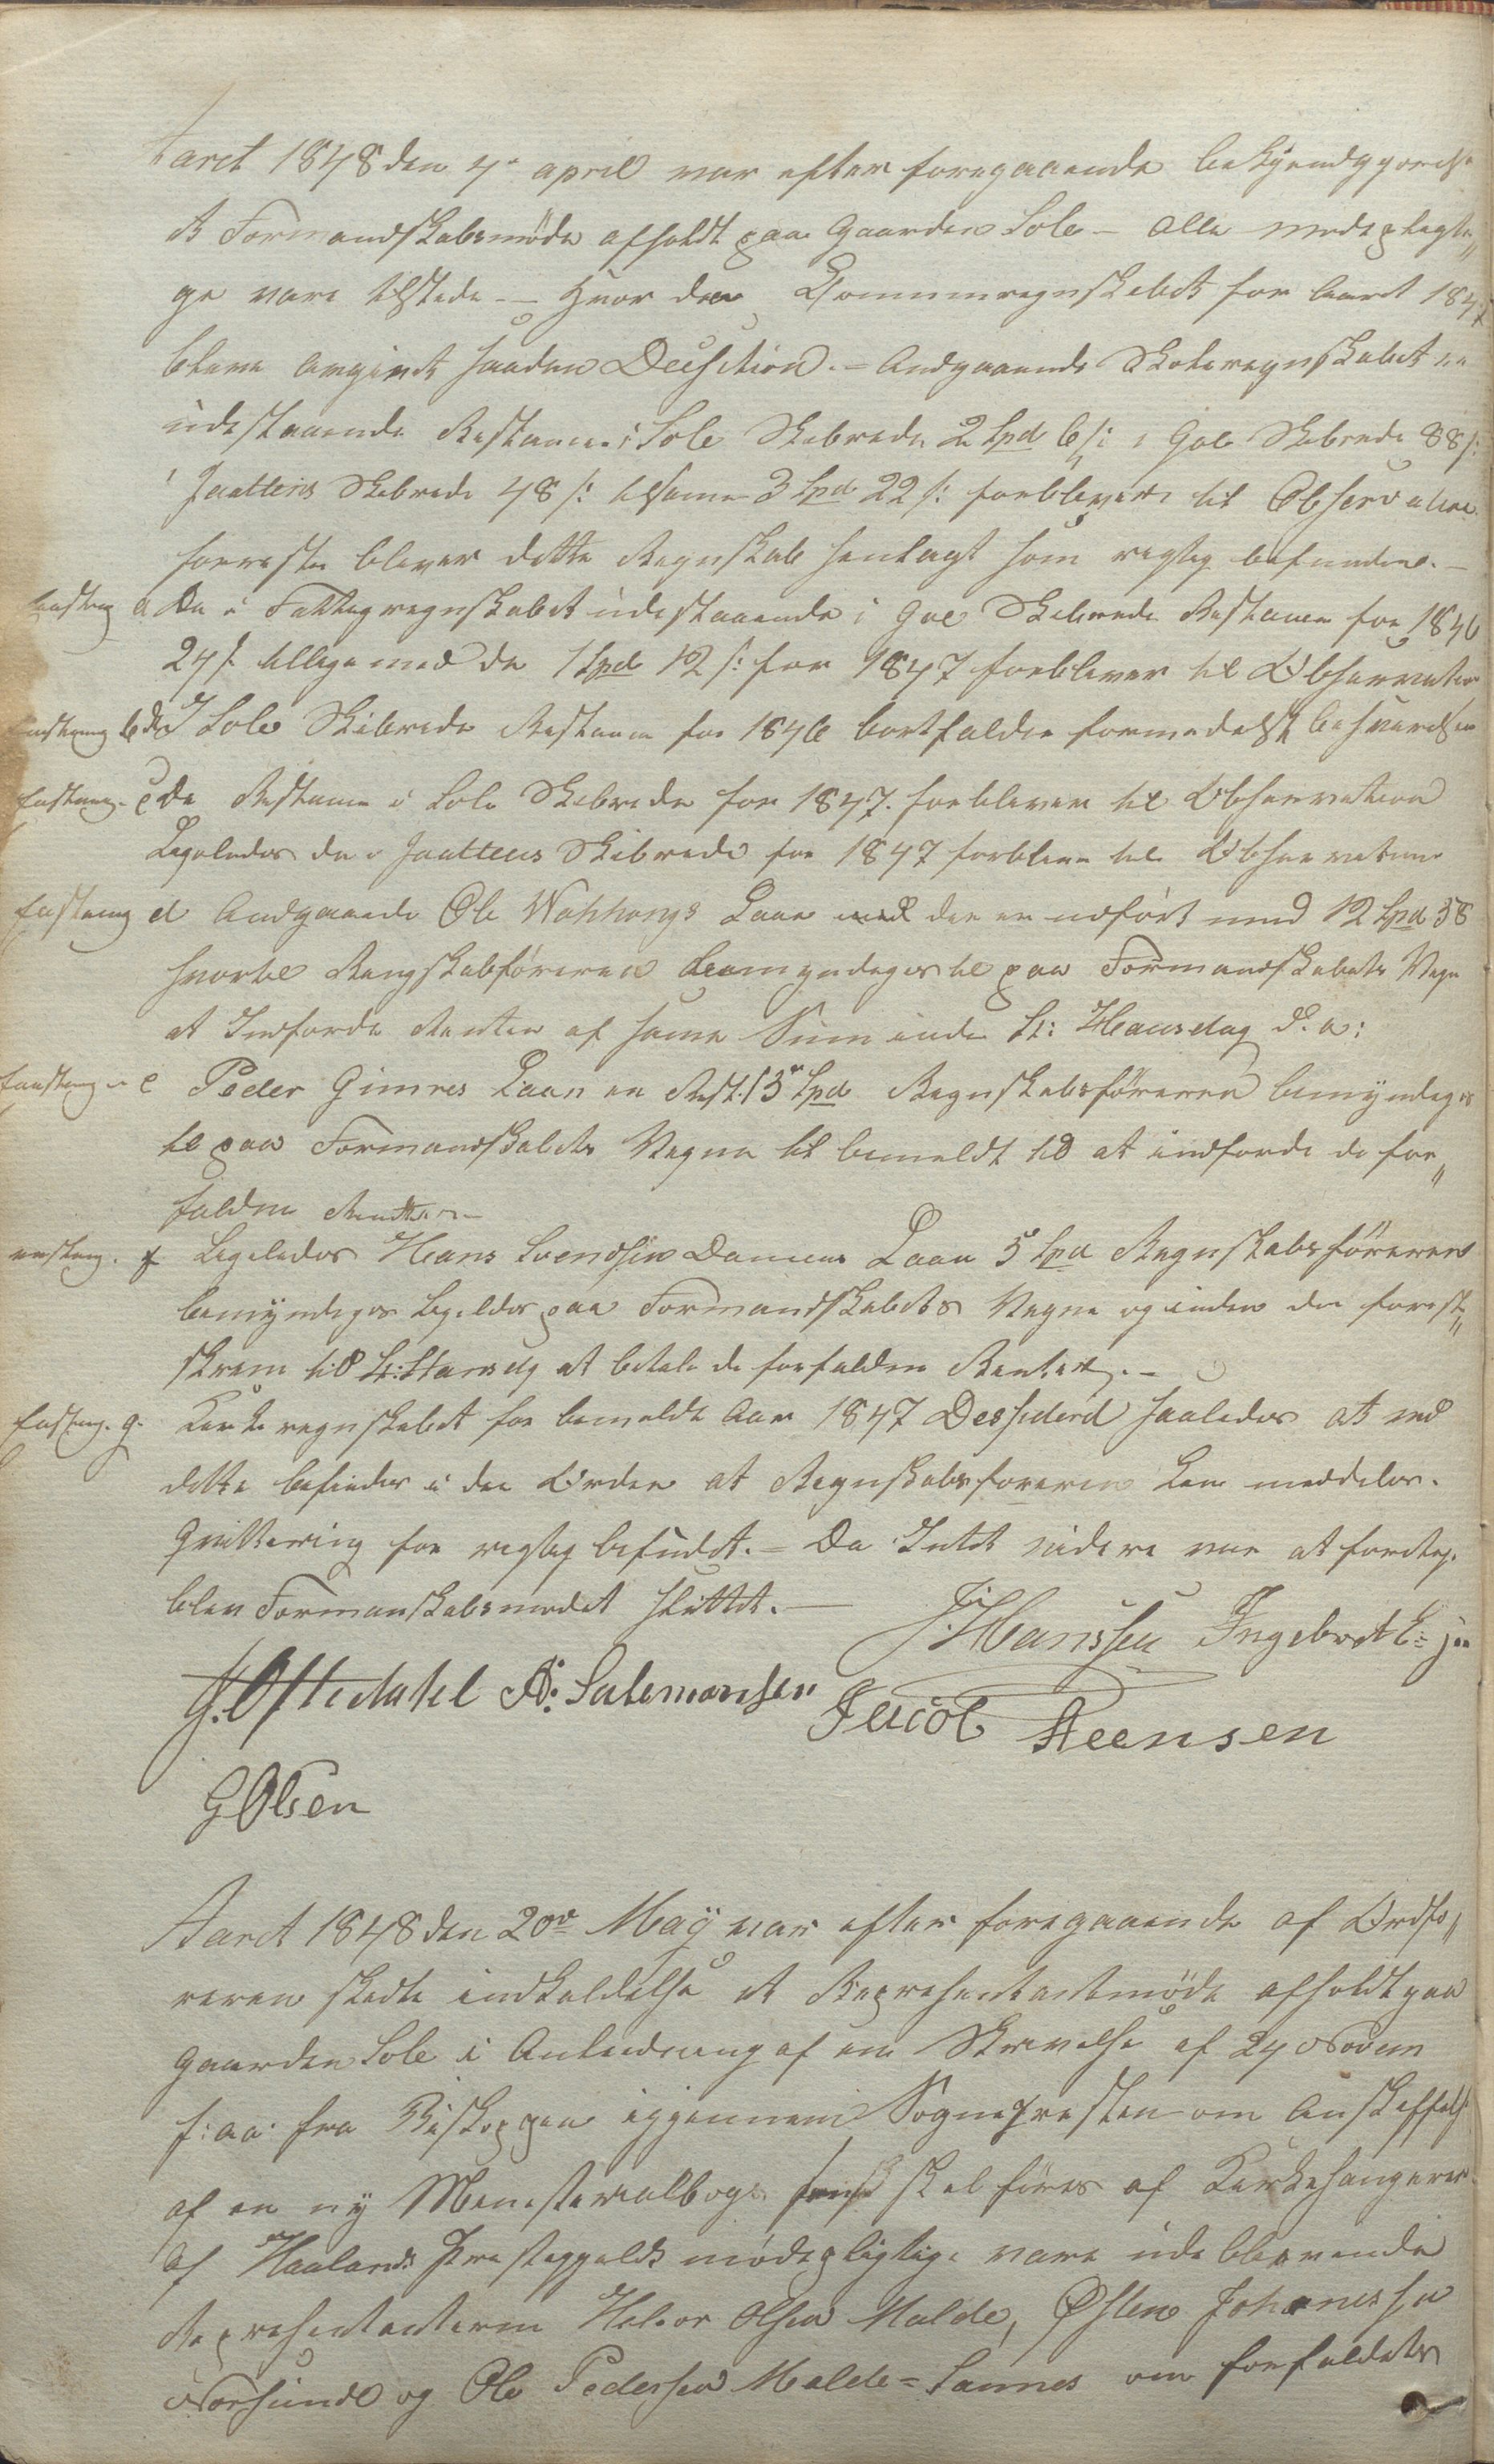 aaret 1848 den 4de april var efter foregaaende bekjendtgjørelse
et Formandskabsmøde afholdt paa Gaarden Sole – alle mødepligti„
ge vare tilstede – hvor da Communregnskabet for Aaret 1847
bleve afgivet saadan Decision. – Andgaaende Skoleregnskabet
udestaaende Restance i Sole Skibrede 2 Spd 6 s: i Goe Skibrede 88 s:
i Jaattens Skibrede 48 s: tilsamen 3 Spd 22 s: forbliver til Observation
forresten bliver dette Regnskab henlagt som rigtig befunden. –
a Da i Fattigregnskabet udestaaende i Goe Skibrede Restance for 1846
24 s. tillige med de 1 Spd 12 s: for 1847 forbliver til Observation
b de I Sole Skibrede Restance for 1846 bortfalder formedelst
c de Restance i Sole Skibrede for 1847. forbliver til Observation
Ligeledes de i Jaattens Skibrede for 1847 forblive til Observation
d Andgaaende Ole Laan der er udført med 12 Spd 58
hvortil Rengskabføreren bemyndiges til paa Formandskabets Vegne
at Indfordre Renten af samme Sum inden St: Hansdag d. a:
e Peder Gimres Laan en Rest. 13 Spd Regnskabsføreren bemyndiges
til paa Formandskabets Vegne til bemeldt tid at indfordre de for„
faldne Renter –
f Ligeledes Hans Svendsen Laan 5 Spd Regnskabsføreren
bemyndiges ligeledes paa Formandskabets Vegne og inden den forest„
skrevne tid St: Hansdag at betale de forfaldne Renter. –
g. Kirkeregnskabet for bemeldt Aar 1847 Desiderd saaledes at ved
dette befindes i den Orden at Regnskabsføreren kan meddeles.
Qvittering for rigtig befundet. – Da Intet videre var at foretage
blev Formanskabsmødet sluttet. –
J. Hanssen Ingebret
G. Oftedahl A: Salemonsen
Jacob Steensen
G Olsen
Aaret 1848 den 20de May var efter foregaaende af Ordfø„
reren skedte indkaldelse et Representantmøde afholdt paa
Gaarden Sole i Anledning af en Skrivelse af 24 Novem
f: aa: fra Biskoppen igjennem Sognepresten om Anskaffelse
af en ny Menisterialbog skal føres af Kirkesangeren
af Haalands Prestegjeld mødepligtige vare udeblivende
Representanterne Halvor Olsen Malde, Østen Johanessen
Norsunde og Ole Pedersen Malde = Sannes om forfaldets